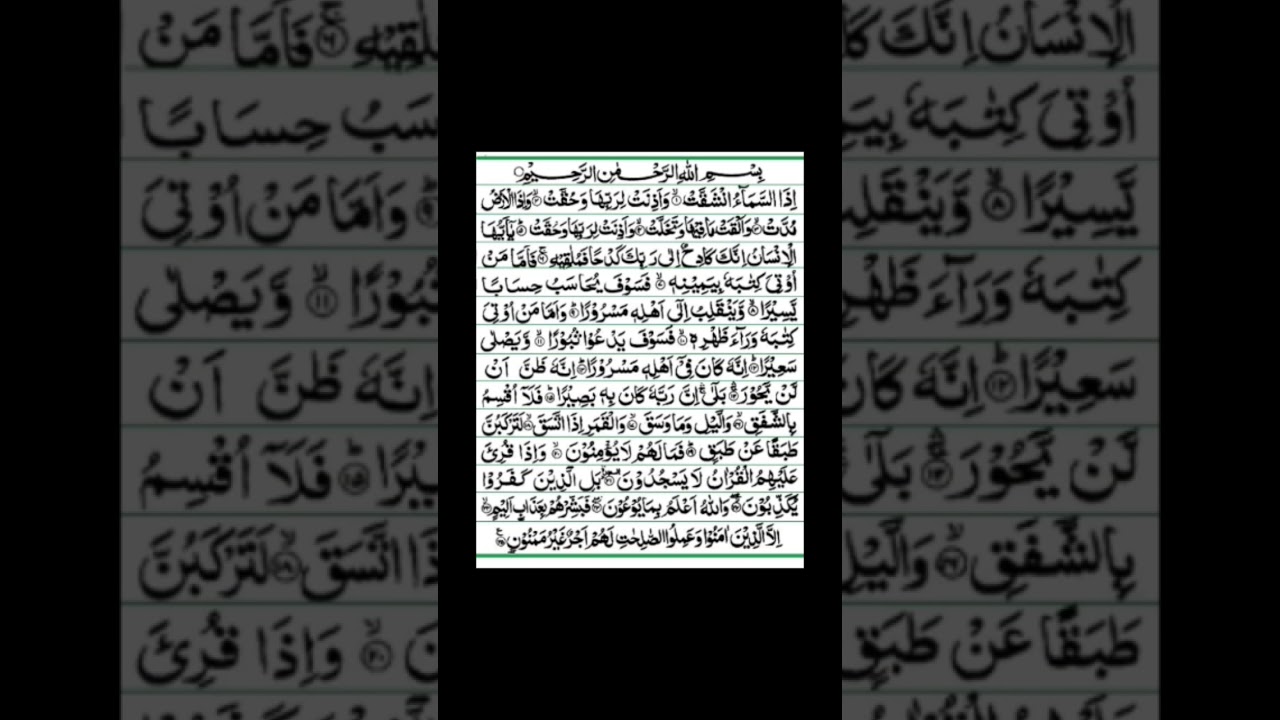 بِسْمِ اللهِ الرَّحْمٰنِ الرَّحِيْمِ
اِذَا السَّمَآءُ انْشَقَّتْ ۙ۱ وَاَذِنَتْ لِرَبِّهَا وَحُقَّتْ ۙ۲ وَاِذَا الْاَرْضُ
مُدَّتْ ۙ۳ وَاَلْقَتْ مَا فِيْهَا وَتَخَلَّتْ ۙ۴ وَاَذِنَتْ لِرَبِّهَا وَحُقَّتْ ؕ۵ يٰٓاَيُّهَا
الْاِنْسَانُ اِنَّكَ كَادِحٌ اِلٰى رَبِّكَ كَدْحًا فَمُلٰقِيْهِ ۚ۶ فَاَمَّا مَنْ
اُوْتِيَ كِتٰبَهٗ بِيَمِيْنِهٖ ۙ۷ فَسَوْفَ يُحَاسَبُ حِسَابًا
يَّسِيْرًا ۙ۸ وَّيَنْقَلِبُ اِلٰٓى اَهْلِهٖ مَسْرُوْرًا ؕ۹ وَاَمَّا مَنْ اُوْتِيَ
كِتٰبَهٗ وَرَآءَ ظَهْرِهٖ ۙ۱۰ فَسَوْفَ يَدْعُوْا ثُبُوْرًا ۙ۱۱ وَّيَصْلٰى
سَعِيْرًا ؕ۱۲ اِنَّهٗ كَانَ فِيْٓ اَهْلِهٖ مَسْرُوْرًا ؕ۱۳ اِنَّهٗ ظَنَّ اَنْ
لَّنْ يَّحُوْرَ ۚۛ۱۴ بَلٰٓى ۚۛ اِنَّ رَبَّهٗ كَانَ بِهٖ بَصِيْرًا ؕ۱۵ فَلَآ اُقْسِمُ
بِالشَّفَقِ ۙ۱۶ وَالَّيْلِ وَمَا وَسَقَ ۙ۱۷ وَالْقَمَرِ اِذَا اتَّسَقَ ۙ۱۸ لَتَرْكَبُنَّ
طَبَقًا عَنْ طَبَقٍ ؕ۱۹ فَمَا لَهُمْ لَا يُؤْمِنُوْنَ ۙ۲۰ وَاِذَا قُرِئَ
عَلَيْهِمُ الْقُرْاٰنُ لَا يَسْجُدُوْنَ ؕ۲۱ بَلِ الَّذِيْنَ كَفَرُوْا
يُكَذِّبُوْنَ ۖ۲۲ وَاللهُ اَعْلَمُ بِمَا يُوْعُوْنَ ۖ۲۳ فَبَشِّرْهُمْ بِعَذَابٍ اَلِيْمٍ ۙ۲۴
اِلَّا الَّذِيْنَ اٰمَنُوْا وَعَمِلُوا الصّٰلِحٰتِ لَهُمْ اَجْرٌ غَيْرُ مَمْنُوْنٍ ۲۵